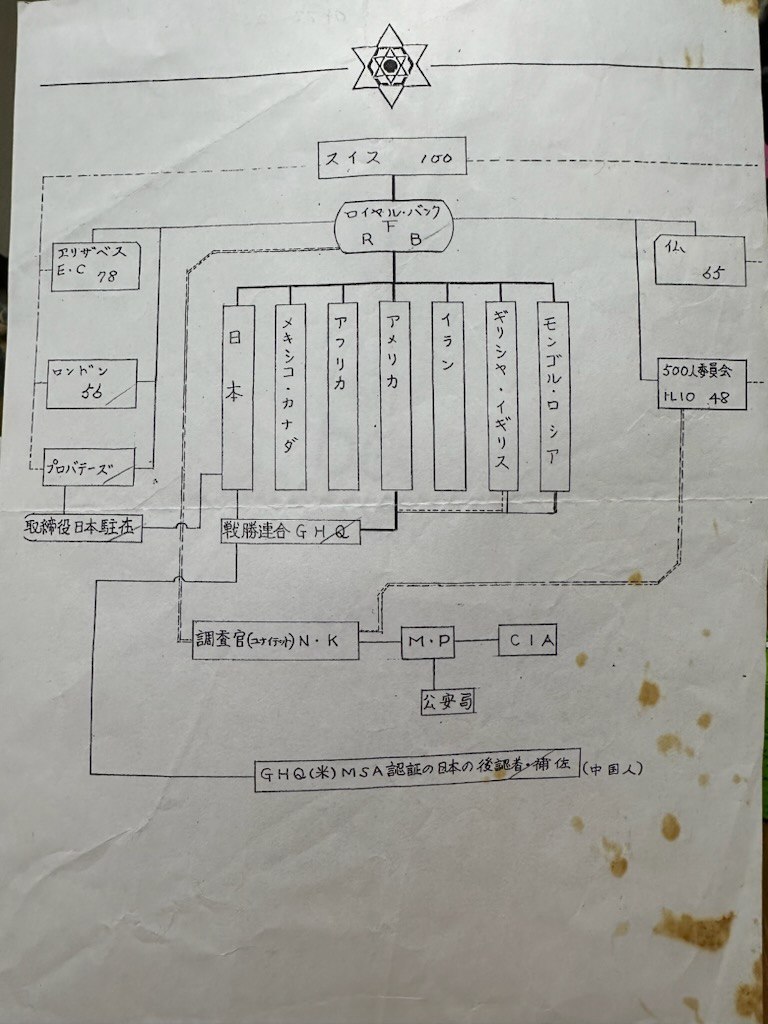 スイス 100
ロイヤル・バンク
F
R B
エリザベス
E・C 78
イム
65
ロンドン
56
500人委員会
11.10 48
プロバテーズ
取締役日本駐在
日本
メキシコ・カナダ
アフリカ
アメリカ
イラン
ギリシャ・イギリス
モンゴル・ロシア
戦勝連合GHQ
調査官(ユナイテット)N・K
M・P
CIA
公安局
GHQ(米)MSA認証の日本の後認者・補佐(中国人)